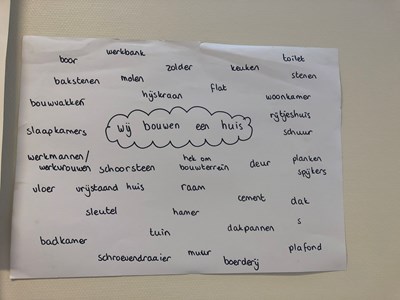 werkbank
boor
zolder
keuken
toilet
bakstenen
molen
stenen
hijskraan
flat
bouwvakker
woonkamer
wij bouwen een huis
rijtjeshuis
slaapkamers
schuur
werkmannen/
werkvrouwen
schoorsteen
hek om
bouwterrein
deur
planken
spijkers
vloer
vrijstaand huis
raam
cement
dak
sleutel
hamer
s
tuin
dakpannen
badkamer
muur
plafond
schroevendraaier
boerderij